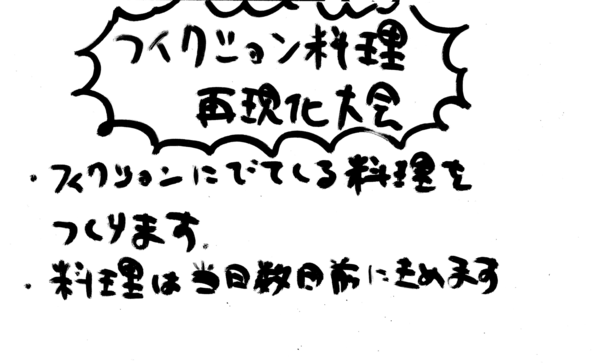 フィクション料理
再現化大会
・フィクションにでてくる料理を
つくります。
・料理は当日数日前にきめます